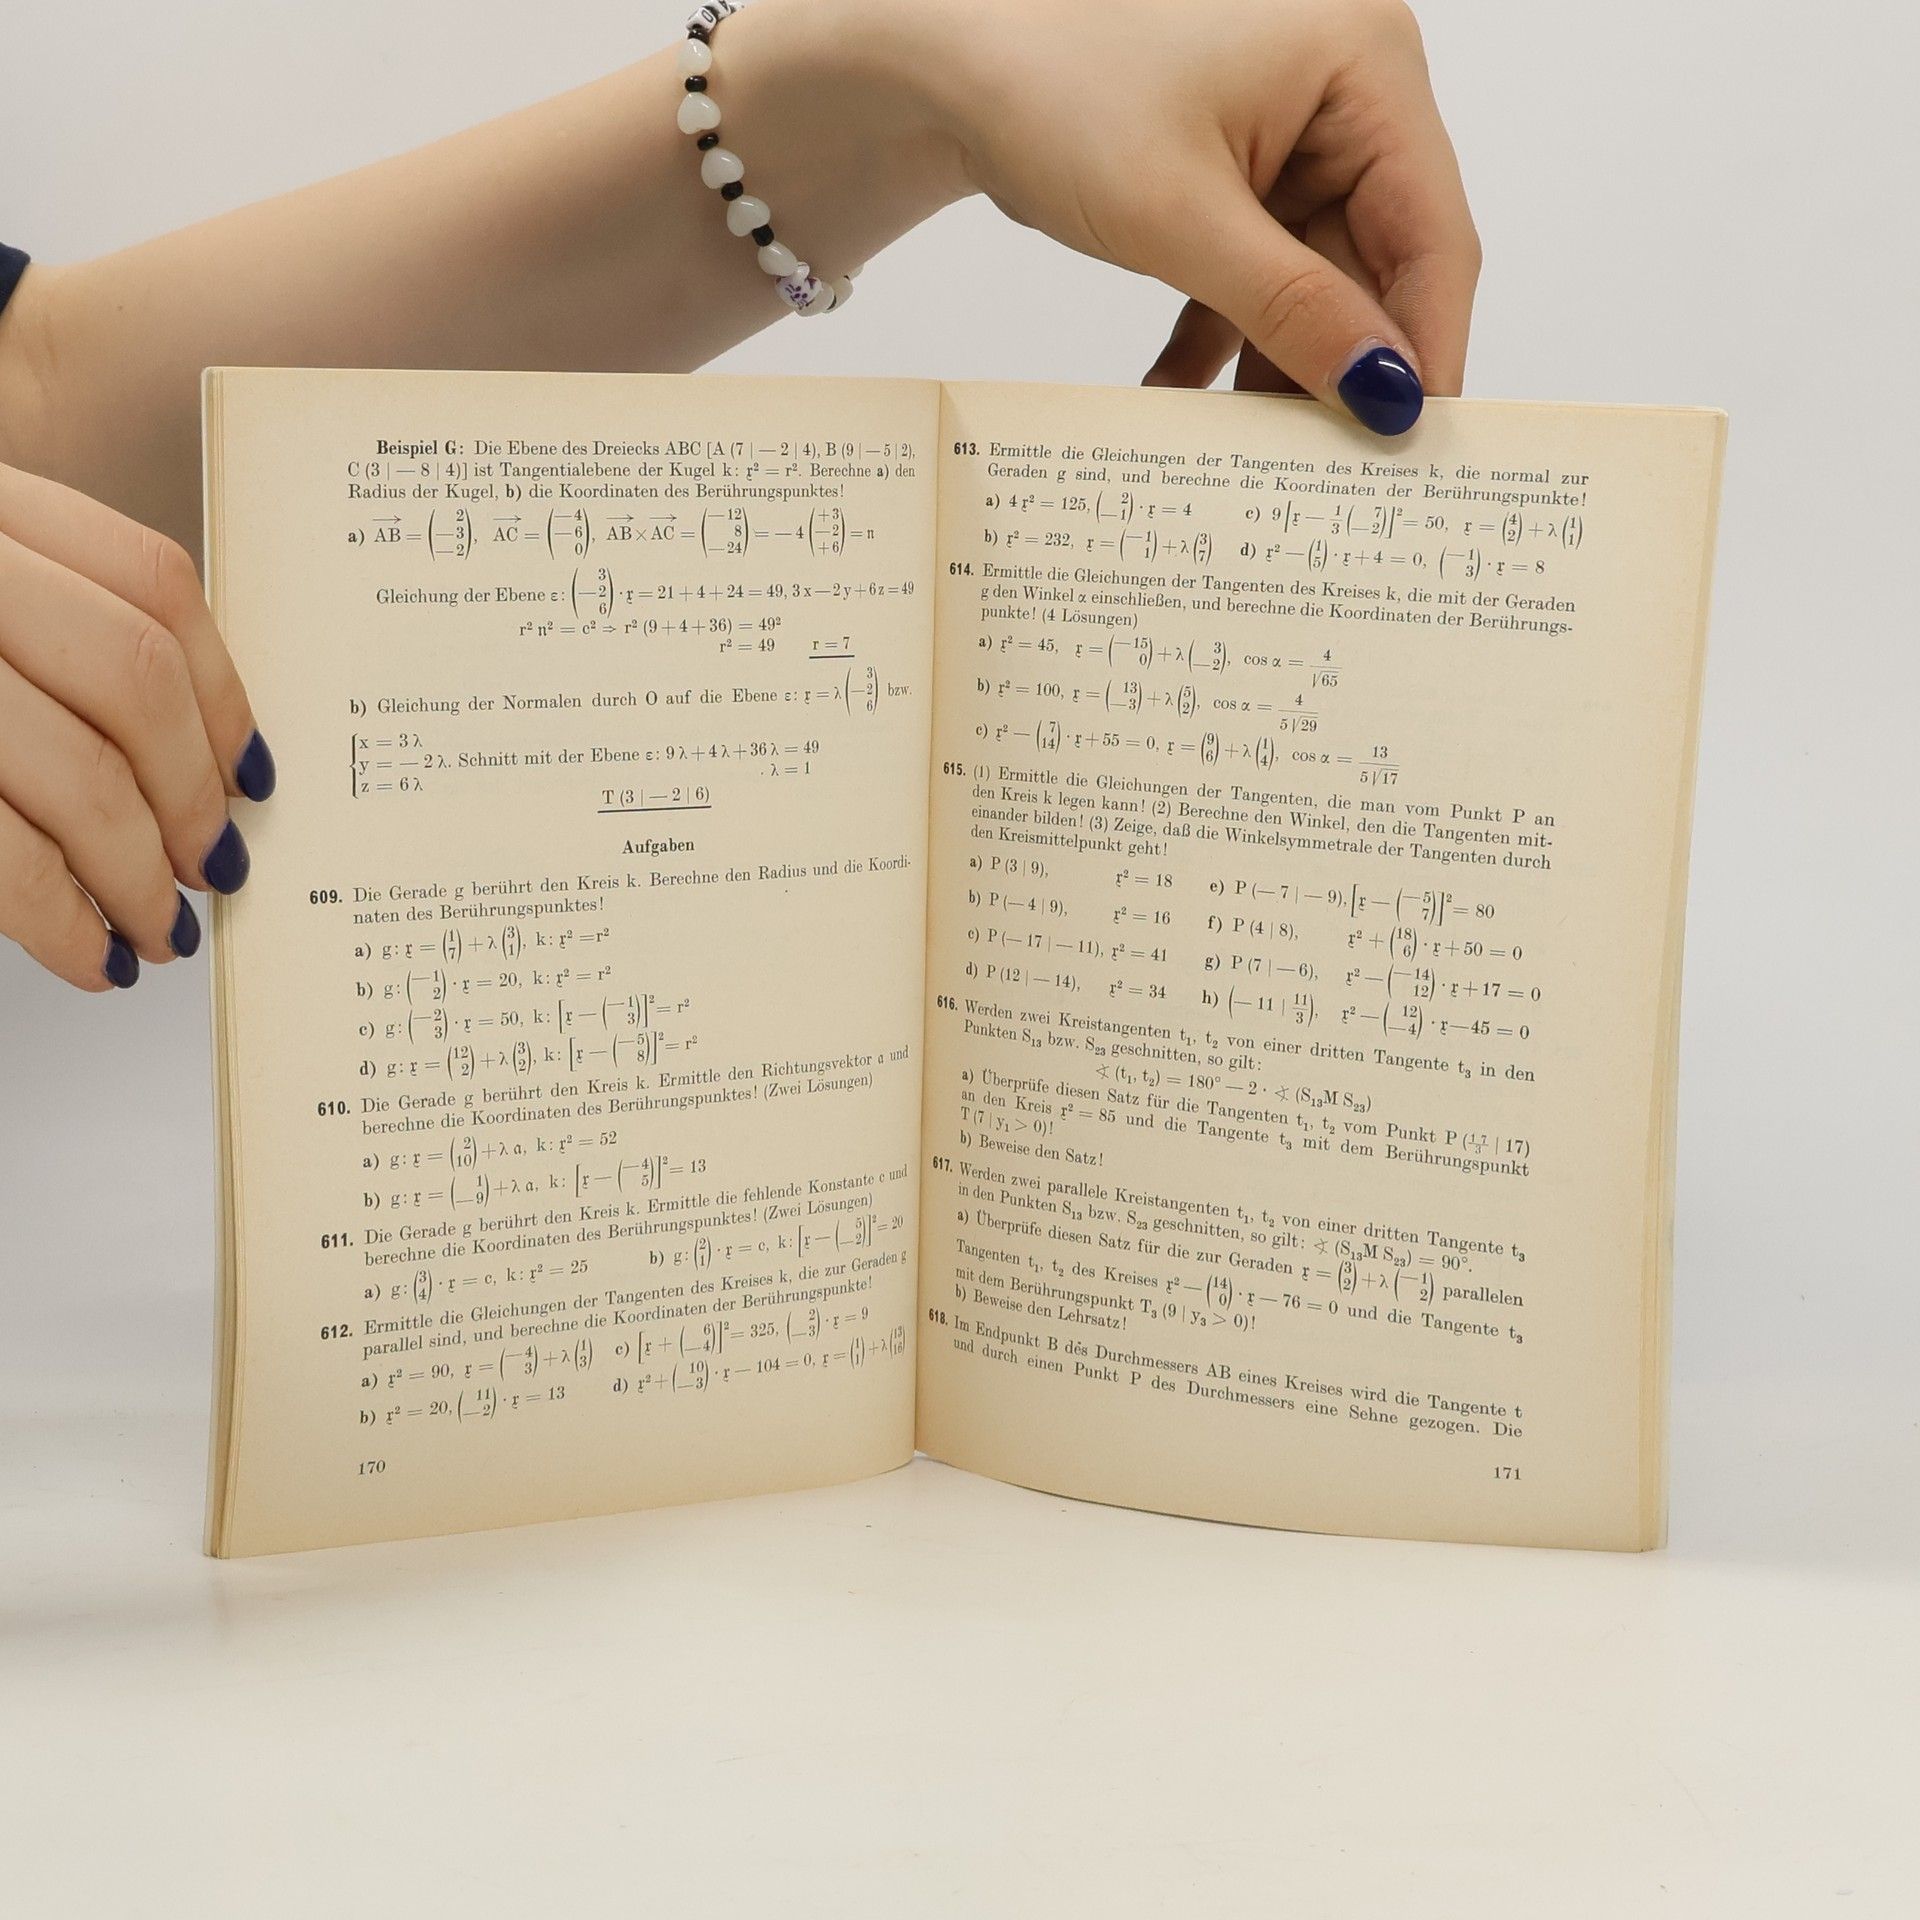 Beispiel G: Die Ebene des Dreiecks ABC [A (7 | — 2 | 4), B (9 | — 5 | 2),
C (3 | — 8 | 4)] ist Tangentialebene der Kugel k: 𝔵² = r². Berechne a) den
Radius der Kugel, b) die Koordinaten des Berührungspunktes!
a) AB = (2 —3 —2), AC = (—4 —6 0), AB × AC = (—12 8 —24) = — 4 (+3 —2 +6) = n
Gleichung der Ebene ε: (3 —2 6) · 𝔵 = 21 + 4 + 24 = 49, 3 x — 2 y + 6 z = 49
r² n² = c² ⇒ r² (9 + 4 + 36) = 49²
r² = 49 r = 7
b) Gleichung der Normalen durch O auf die Ebene ε: 𝔵 = λ (3 —2 6) bzw.
x = 3 λ
y = — 2 λ. Schnitt mit der Ebene ε: 9 λ + 4 λ + 36 λ = 49
z = 6 λ λ = 1
T (3 | — 2 | 6)
Aufgaben
609. Die Gerade g berührt den Kreis k. Berechne den Radius und die Koordi-
naten des Berührungspunktes!
a) g: 𝔵 = (1 7) + λ (3 1), k: 𝔵² = r²
b) g: (—1 2) · 𝔵 = 20, k: 𝔵² = r²
c) g: (—2 3) · 𝔵 = 50, k: [𝔵 — (—1 3)]² = r²
d) g: 𝔵 = (12 2) + λ (3 2), k: [𝔵 — (—5 8)]² = r²
610. Die Gerade g berührt den Kreis k. Ermittle den Richtungsvektor 𝔞 und
berechne die Koordinaten des Berührungspunktes! (Zwei Lösungen)
a) g: 𝔵 = (2 10) + λ 𝔞, k: 𝔵² = 52
b) g: 𝔵 = (1 —9) + λ 𝔞, k: [𝔵 — (—4 5)]² = 13
611. Die Gerade g berührt den Kreis k. Ermittle die fehlende Konstante c und
berechne die Koordinaten des Berührungspunktes! (Zwei Lösungen)
a) g: (3 4) · 𝔵 = c, k: 𝔵² = 25 b) g: (2 1) · 𝔵 = c, k: [𝔵 — (5 —2)]² = 20
612. Ermittle die Gleichungen der Tangenten des Kreises k, die zur Geraden g
parallel sind, und berechne die Koordinaten der Berührungspunkte!
a) 𝔵² = 90, 𝔵 = (—4 3) + λ (1 3) c) [𝔵 + (6 —4)]² = 325, (2 —3) · 𝔵 = 9
b) 𝔵² = 20, (11 —2) · 𝔵 = 13 d) 𝔵² + (10 —3) · 𝔵 — 104 = 0, 𝔵 = (1 1) + λ
170
613. Ermittle die Gleichungen der Tangenten des Kreises k, die normal zur
Geraden g sind, und berechne die Koordinaten der Berührungspunkte!
a) 4 𝔵² = 125, (2 —1) · 𝔵 = 4 c) 9 [𝔵 — 1/3 (7 —2)]² = 50, 𝔵 = (4 2) + λ (1 1)
b) 𝔵² = 232, 𝔵 = (—1 1) + λ (3 7) d) 𝔵² — (1 5) · 𝔵 + 4 = 0, (—1 3) · 𝔵 = 8
614. Ermittle die Gleichungen der Tangenten des Kreises k, die mit der Geraden
g den Winkel α einschließen, und berechne die Koordinaten der Berührungs-
punkte! (4 Lösungen)
a) 𝔵² = 45, 𝔵 = (—15 0) + λ (3 —2), cos α = 4/√65
b) 𝔵² = 100, 𝔵 = (13 —3) + λ (5 2), cos α = 4/5√29
c) 𝔵² — (7 14) · 𝔵 + 55 = 0, 𝔵 = (9 6) + λ (1 4), cos α = 13/5√17
615. (1) Ermittle die Gleichungen der Tangenten, die man vom Punkt P an
den Kreis k legen kann! (2) Berechne den Winkel, den die Tangenten mit-
einander bilden! (3) Zeige, daß die Winkelsymmetrale der Tangenten durch
den Kreismittelpunkt geht!
a) P (3 | 9), 𝔵² = 18 e) P (— 7 | — 9), [𝔵 — (—5 7)]² = 80
b) P (— 4 | 9), 𝔵² = 16 f) P (4 | 8), 𝔵² + (18 6) · 𝔵 + 50 = 0
c) P (— 17 | — 11), 𝔵² = 41 g) P (7 | — 6), 𝔵² — (—14 12) · 𝔵 + 17 = 0
d) P (12 | — 14), 𝔵² = 34 h) (— 11 | 11/3), 𝔵² — (12 —4) · 𝔵 — 45 = 0
616. Werden zwei Kreistangenten t₁, t₂ von einer dritten Tangente t₃ in den
Punkten S₁₃ bzw. S₂₃ geschnitten, so gilt:
∢ (t₁, t₂) = 180° — 2 · ∢ (S₁₃M S₂₃)
a) Überprüfe diesen Satz für die Tangenten t₁, t₂ vom Punkt P (17/3 | 17)
an den Kreis 𝔵² = 85 und die Tangente t₃ mit dem Berührungspunkt
T (7 | y₁ > 0)!
b) Beweise den Satz!
617. Werden zwei parallele Kreistangenten t₁, t₂ von einer dritten Tangente t₃
in den Punkten S₁₃ bzw. S₂₃ geschnitten, so gilt: ∢ (S₁₃M S₂₃) = 90°.
a) Überprüfe diesen Satz für die zur Geraden 𝔵 = (3 2) + λ (—1 2) parallelen
Tangenten t₁, t₂ des Kreises 𝔵² — (14 0) · 𝔵 — 76 = 0 und die Tangente t₃
mit dem Berührungspunkt T₃ (9 | y₃ > 0)!
b) Beweise den Lehrsatz!
618. Im Endpunkt B des Durchmessers AB eines Kreises wird die Tangente t
und durch einen Punkt P des Durchmessers eine Sehne gezogen. Die
171